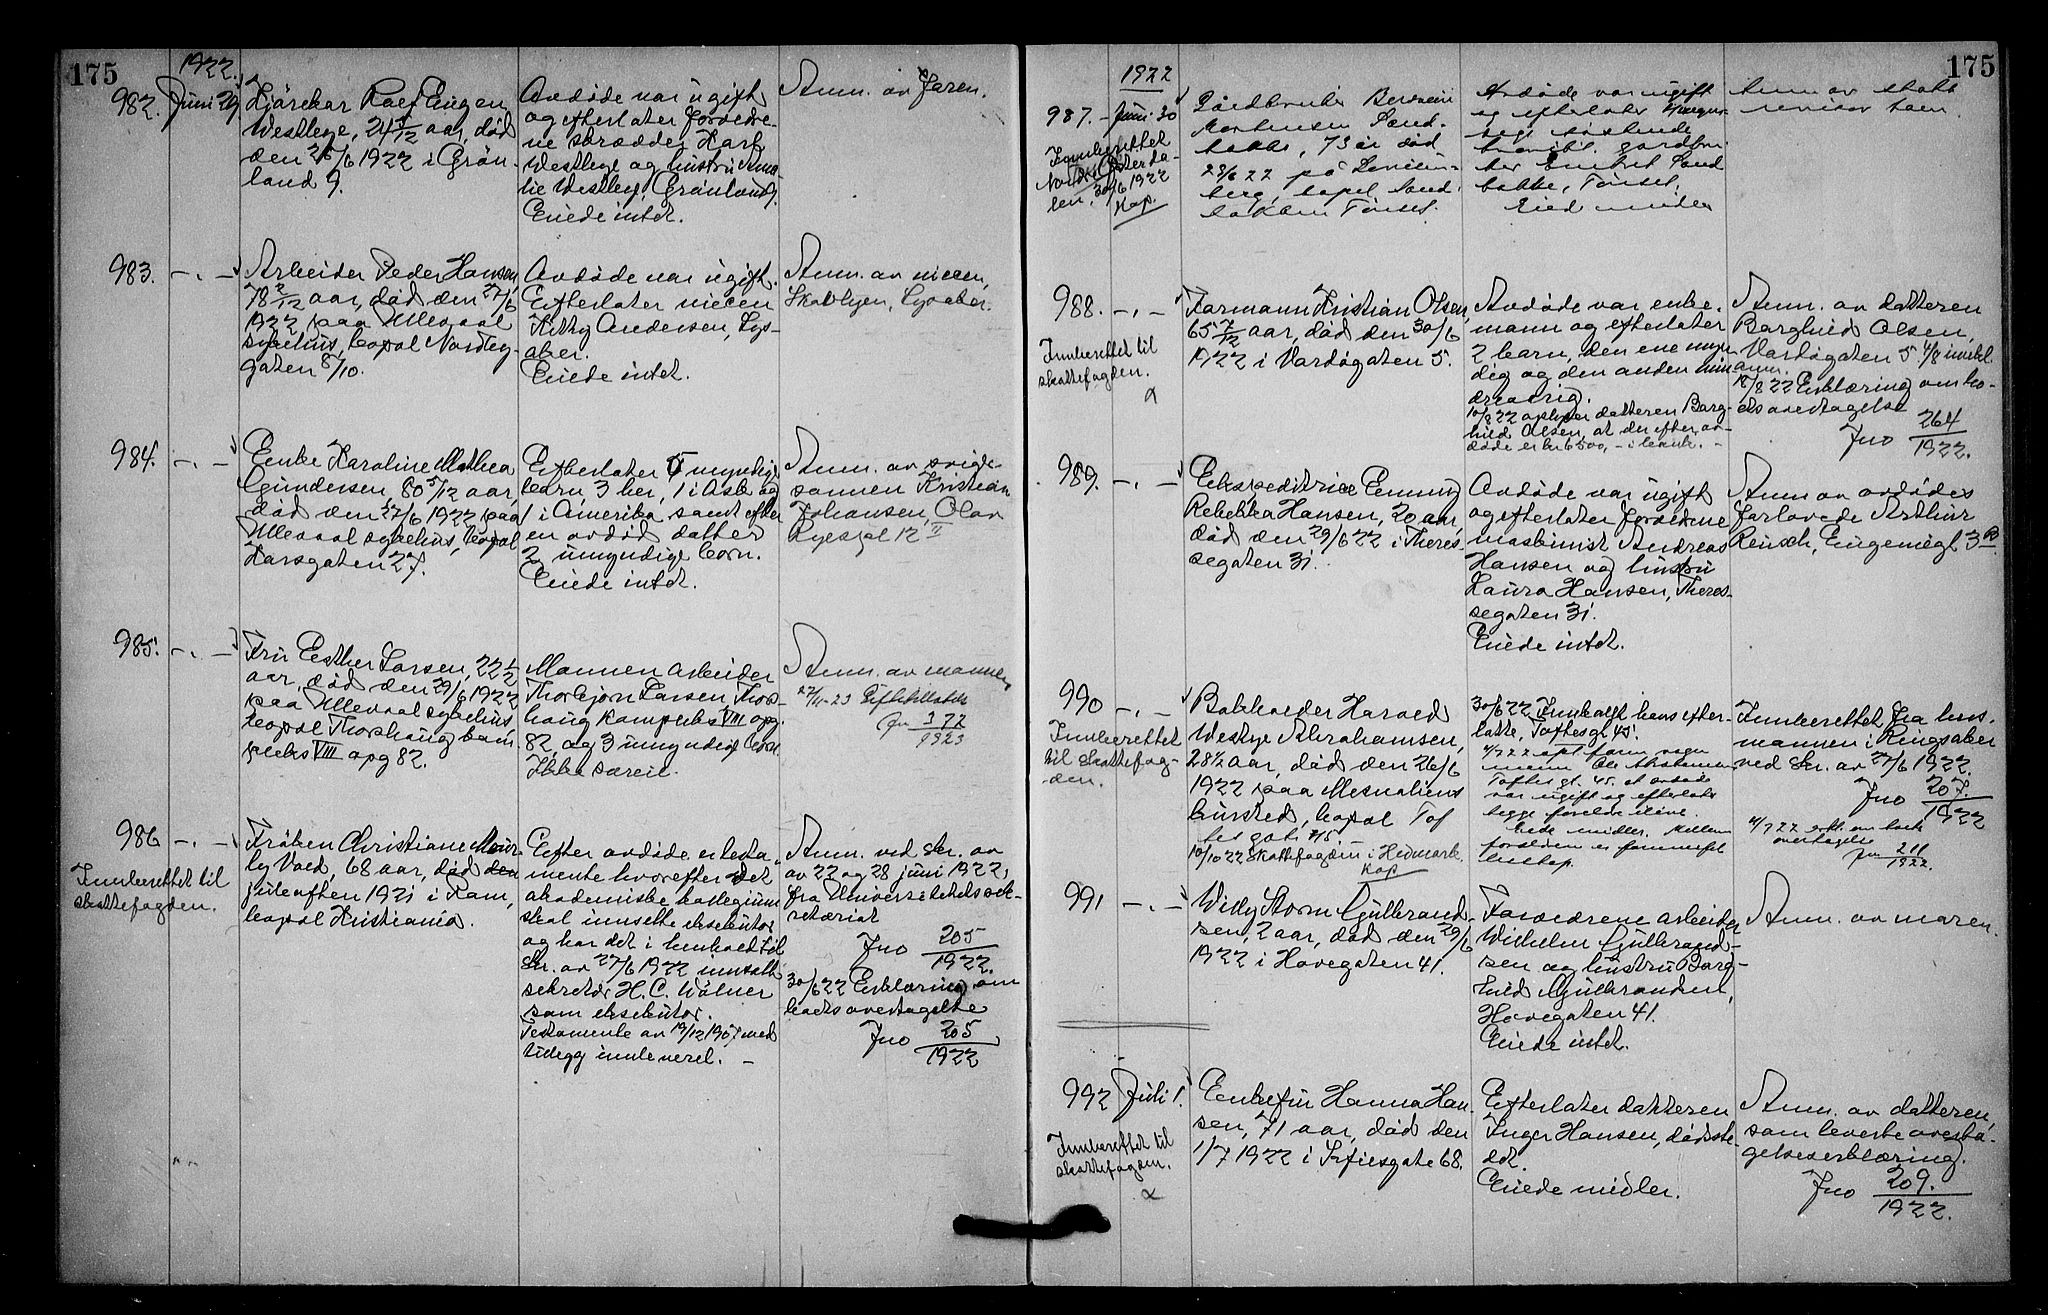 175
1922.
982. Juni 29.
Westlege, 24 aar, død
den 28/6 1922 i Grøn-
land 9.
Avdøde var ugift
og efterlater foreldre-
ne skrædder Karl
Westlege og hustru Ama-
lie Westlege, Grønland 9.
Eiede intet.
Anm. av faren.
983. -.-
Arbeider Peder Hansen,
78 2/12 aar, død den 27/6
1922 paa Ullevaal
sykehus, bopæl Nordby-
gaten 8/10.
Avdøde var ugift.
Efterlater niecen
Kitty Andersen, Lys-
aker.
Eiede intet.
Anm. av niecen,
Lysaker.
984. -.-
Enke Karoline Mathea
Gundersen, 80 5/12 aar,
død den 27/6 1922 paa
Ullevaal sykehus, bopæl
Karsgaten 27.
Efterlater 5 myndige
barn 3 her, 1 i Asker og
1 i Amerika samt efter
en avdød datter
2 umyndige barn.
Eiede intet.
Anm. av sviger-
sønnen Kristian
Johansen, Olav
Ryespl 12 II
985. -.-
Fru Esther Larsen, 22 1/2
aar, død den 29/6 1922
paa Ullevaal sykehus
bopæl Thorshaug kom-
pleks VIII opg 82.
Mannen arbeider
Thorbjørn Larsen, Thors-
haug kompleks VIII opg.
82, og 3 umyndige barn
Ikke særeie.
Anm. av mannen
27/11-23 Skiftetillatelse
Jno 372
1923
986 -.-
Innberettet til
skattefogden.
Frøken Christiane
Vold, 68 aar, død den
juleaften 1921 i Rom,
bopæl Kristiania.
Efter avdøde er testa-
mente hvorefter det
akademiske kollegium
skal innsette eksekutor
og har det i henhold til
skr. av 27/6 1922 innsatt
sekretær H. C.
som eksekutor.
Testamente av 19/12 1907 med
tillegg innlevert. -
Anm. ved skr. av
av 22 og 28 juni 1922,
fra Universitetets sek-
retariat
Jno 205
1922.
30/6 22 Erklæring om
boets overtagelse
Jno 205
1922
175
1922
987. - Juni 30
Innberettet
Nordre Østerda-
len, 30/6 1922
Kap.
Gårdbruker
Mortensen Sand-
bakke, 73 år død
28/6 22 på
berg, bopel Sand-
bakken Tønset.
Avdøde var ugift
og efterlater
gårdbru-
ker Sand-
bakke, Tønset.
Eied midler
Anm av
revisor
988. -.-
Innberettet til
skattefogden.
α
Formann Kristian Olsen,
65 7/12 aar, død den 30/6
1922 i Vardøgaten 5.
Avdøde var enke-
mann og efterlater
2 barn, den ene myn-
dig og den anden min-
dreaarig.
10/8 22 oplyser datteren Borg-
hild Olsen, at der efter av-
døde er kr 6500,- i bank. -
Anm. av datteren
Borghild Olsen,
Vardøgaten 5. 4/8 innkl.
anm.
18/8 22 Erklæring om bo-
ets overtagelse
Jno 264
1922.
989. -.-
Ekspeditrice Emmy
Rebekka Hansen, 20 aar,
død den 29/6 22 i Theres-
segaten 31.
Avdøde var ugift
og efterlater foreldrene
maskinist Andreas
Hansen og hustru
Laura Hansen, Theres-
segaten 31.
Eiede intet.
Anm av avdødes
forlovede Arthur
Reusch, Eugeniegt 3 B
990 -.-
Innberettet
til skattefog-
den.
Bokholder Harald
Westye Abrahamsen,
28 1/2 aar, død den 26/6
1922 paa Mesnaliens
kursted, bopæl Tof-
tes gate 45
10/10 22 skattefogden i Hedmark.
Kap
30/6 22 Innkaldt hans efter-
latte, Toftesgt 45.
Toftes gt. 45. at avdøde
var ugift og efterlater
begge foreldre
midler. Mellem
foreldrene er formuesfel-
lesskap.
Innberettet fra lens-
mannen i Ringsaker
ved skr. av 27/6 1922.
Jno 207.
1922
4/7 22 erkl. om boets
overtagelse
Jno 211
1922.
991 -.-
Willy Storm Gulbrand-
sen, 2 aar, død den 29/6
1922 i Hovegaten 41.
Foreldrene arbeider
Wilhelm Gulbrand-
sen og hustru Borg-
hild Gulbrandsen,
Hovegaten 41.
Eiede intet.
Anm. av moren.
992 Juli 1.
Innberettet til
skattefogden.
α
Enkefru Hanna Han-
sen, 71 aar, død den
1/7 1922 i Sofiesgate 68.
Efterlater datteren
Inger Hansen, dødsste-
det.
Eiede midler.
Anm. av datteren,
som leverte overta-
gelseserklæring.
Jno 209.
1922.